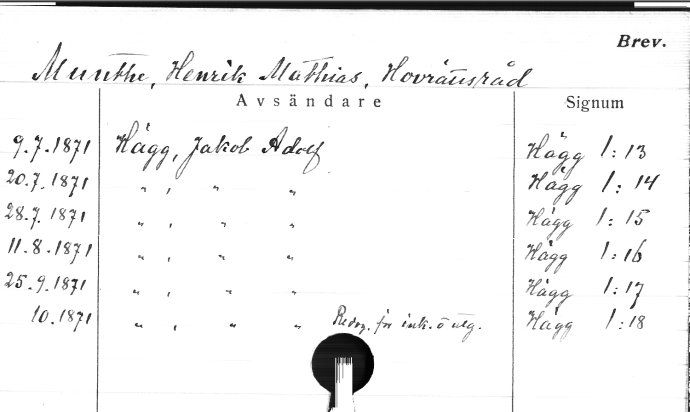 Brev.
Munthe, Henrik Mathias, Hovrättsråd
Avsändare Signum
9.7.1871 Hägg, Jakob Adolf Hägg 1:13
20.7.1871 " , " " Hägg 1:14
28.7.1871 " , " " Hägg 1:15
11.8.1871 " , " " Hägg 1:16
25.9.1871 " , " " Hägg 1:17
10.1871 " , " " Redog. för ink. o utg. Hägg 1:18